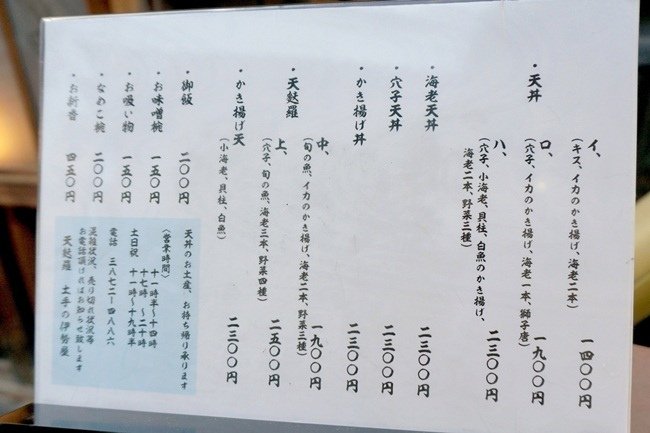 ・天丼
イ、
(キス、イカのかき揚げ、海老二本)
一四〇〇円
ロ、
(穴子、イカのかき揚げ、海老一本、獅子唐)
一九〇〇円
ハ、
(穴子、小海老、貝柱、白魚のかき揚げ、
海老二本、野菜三種)
二三〇〇円
・海老天丼 二三〇〇円
・穴子天丼 二三〇〇円
・かき揚げ丼 二三〇〇円
・天麩羅
中、
(旬の魚、イカのかき揚げ、海老二本、野菜三種)
一九〇〇円
上、
(穴子、旬の魚、海老三本、野菜四種)
二五〇〇円
・かき揚げ天
(小海老、貝柱、白魚)
二三〇〇円
・御飯 二〇〇円
・お味噌椀 一五〇円
・お吸い物 一五〇円
・なめこ椀 二〇〇円
・お新香 四五〇円
天丼のお土産、お持ち帰り承ります
(営業時間)
十一時半〜十四時
十七時〜二十時
土日祝 十一時〜十九時半
電話 三八七二ー四八八六
混雑状況、売り切れ状況等
お電話頂ければお知らせ致します
天麩羅 土手の伊勢屋